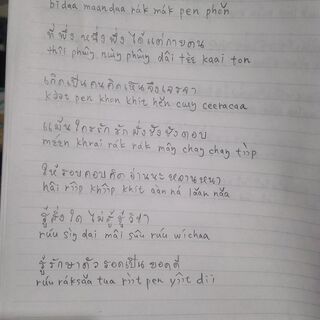 bìdaa maandaa rák mák pen phǒn
ที่พึ่ง หนึ่งพึ่ง ได้แต่กายตน
thîi phûŋ nùŋ phûŋ dâi tɛ̀ɛ kaai ton
เกิดเป็นคนคิดเห็นจึงเจรจา
kə̀ət pen khon khít hěn cuŋ ceeracaa
แม้นใครรัก รักมั่งชังชังตอบ
mɛ́ɛn khrai rák rák mâŋ chaŋ chaŋ tɔ̀ɔp
ให้รอบคอบคิด อ่านนะ หลานหนา
hâi rɔ̂ɔp khɔ̂ɔp khít àan ná lǎan nǎa
รู้สิ่งใด ไม่สู้รู้วิชา
rúu sìŋ dai mâi sûu rúu wíchaa
รู้รักษาตัว รอดเป็น ยอดดี
rúu ráksǎa tua rɔ̂ɔt pen yɔ̂ɔt dii